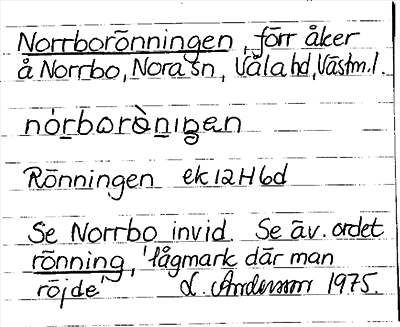 Norrborönningen, förr åker
å Norrbo, Nora sn, Våla hd, Västm. l.
nórborὸ̀nıŋen
Rönningen ek 12H6d
Se Norrbo invid. Se äv. ordet
rönning, 'lågmark där man
röjde' L. Andersson 1975.